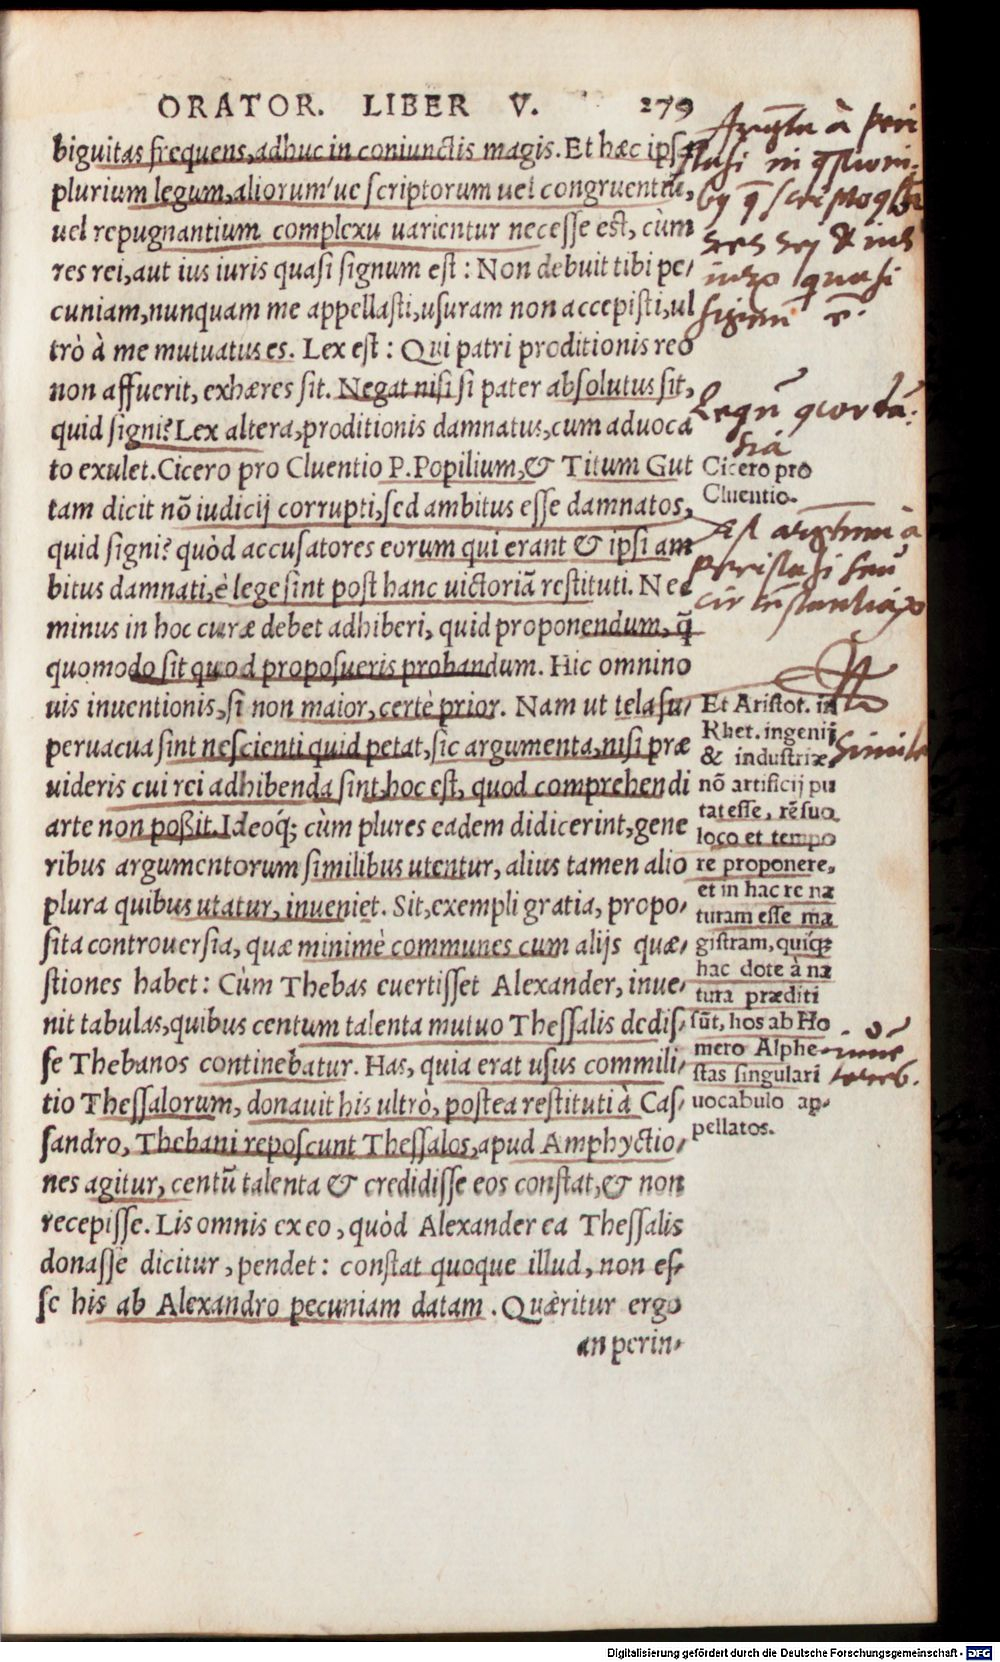 ORATOR. LIBER V. 279
biguitas frequens, adhuc in coniunctis magis. Et hæc ipsa
plurium legum, aliorum'ue scriptorum uel congruentiũ,
uel repugnantium complexu uarientur necesse est, cùm
res rei, aut ius iuris quasi signum est: Non debui tibi pe-
cuniam, nunquam me appellasti, usuram non accepisti, ul
trò à me mutuatus es. Lex est: Qui patri proditionis reo
non affuerit, exhæres sit. Negat nisi si pater absolutus sit,
quid signi? Lex altera, proditionis damnatus, cum aduoca
to exulet. Cicero pro Cluentio P. Popilium, & Titum Gut
tam dicit nõ iudicij corrupti, sed ambitus esse damnatos,
quid signi? quòd accusatores eorum qui erant & ipsi am
bitus damnati, è lege sint post hanc uictoriã restituti. Nec
minus in hoc curæ debet adhiberi, quid proponendum, q̃
quomodo sit quod proposueris probandum. Hic omnino
uis inuentionis, si non maior, certè prior. Nam ut tela su-
peruacua sint nescienti quid petat, sic argumenta, nisi præ
uideris cui rei adhibenda sint, hoc est, quod comprehendi
arte non poßit. Ideoq́; cùm plures eadem didicerint, gene
ribus argumentorum similibus utentur, alius tamen alio
plura quibus utatur, inueniet. Sit, exempli gratia, propo-
sita controuersia, quæ minimè communes cum alijs quæ-
stiones habet: Cùm Thebas euertisset Alexander, inue-
nit tabulas, quibus centum talenta mutuo Thessalis dedis-
se Thebanos continebatur. Has, quia erat usus commili-
tio Thessalorum, donauit his ultrò, postea restituti à Cas-
sandro, Thebani reposcunt Thessalos, apud Amphyctio-
nes agitur, centũ talenta & credidisse eos constat, & non
recepisse. Lis omnis ex eo, quòd Alexander ea Thessalis
donasse dicitur, pendet: constat quoque illud, non es-
se his ab Alexandro pecuniam datam. Quæritur ergo
an perin-
Cicero pro
Cluentio.
Et Aristot. in
Rhet. ingenij
& industriæ
nõ artificij pu
tat esse, rẽ suo
loco et tempo
re proponere,
et in hac re na
turam esse ma
gistram, quiq́;
hac dote à na
tura præditi
sũt, hos ab Ho
mero Alphe-
stas singulari
uocabulo ap-
pellatos.
Simile
Digitalisierung gefördert durch die Deutsche Forschungsgemeinschaft - DFG